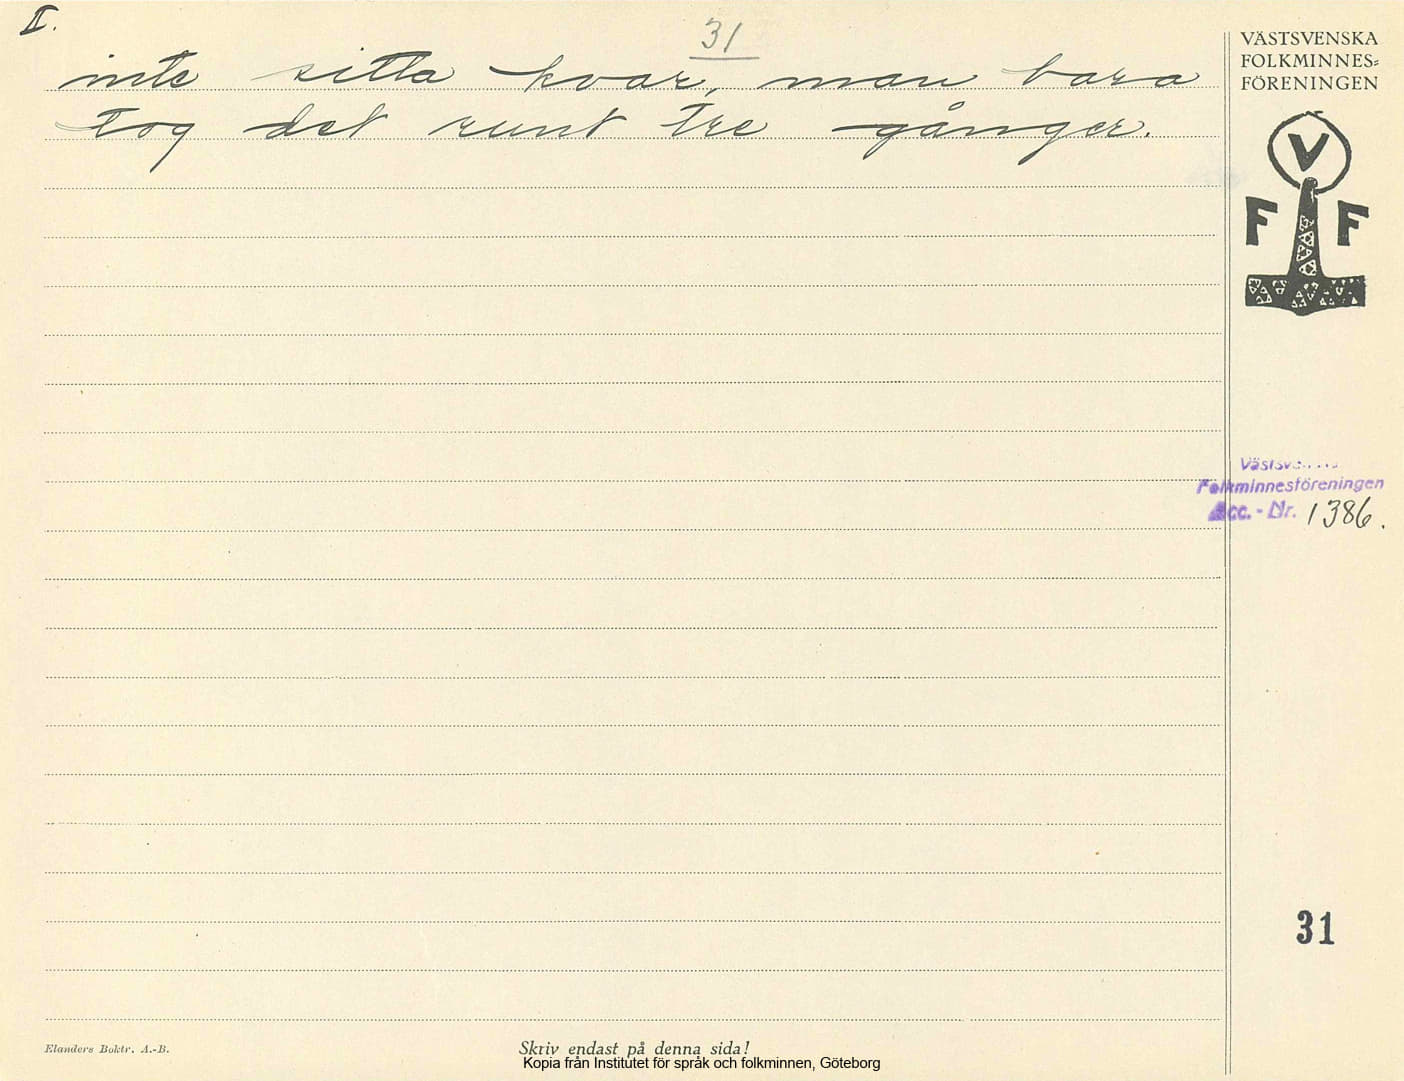 II.
31
inte sitta kvar, man bara
tog det runt tre gånger.
VÄSTSVENSKA
FOLKMINNES=
FÖRENINGEN
V
F F
Folkminnesföreningen
Acc. - Nr. 1386.
31
Elanders Boktr. A.-B.
Skriv endast på denna sida!
Kopia från Institutet för språk och folkminnen, Göteborg